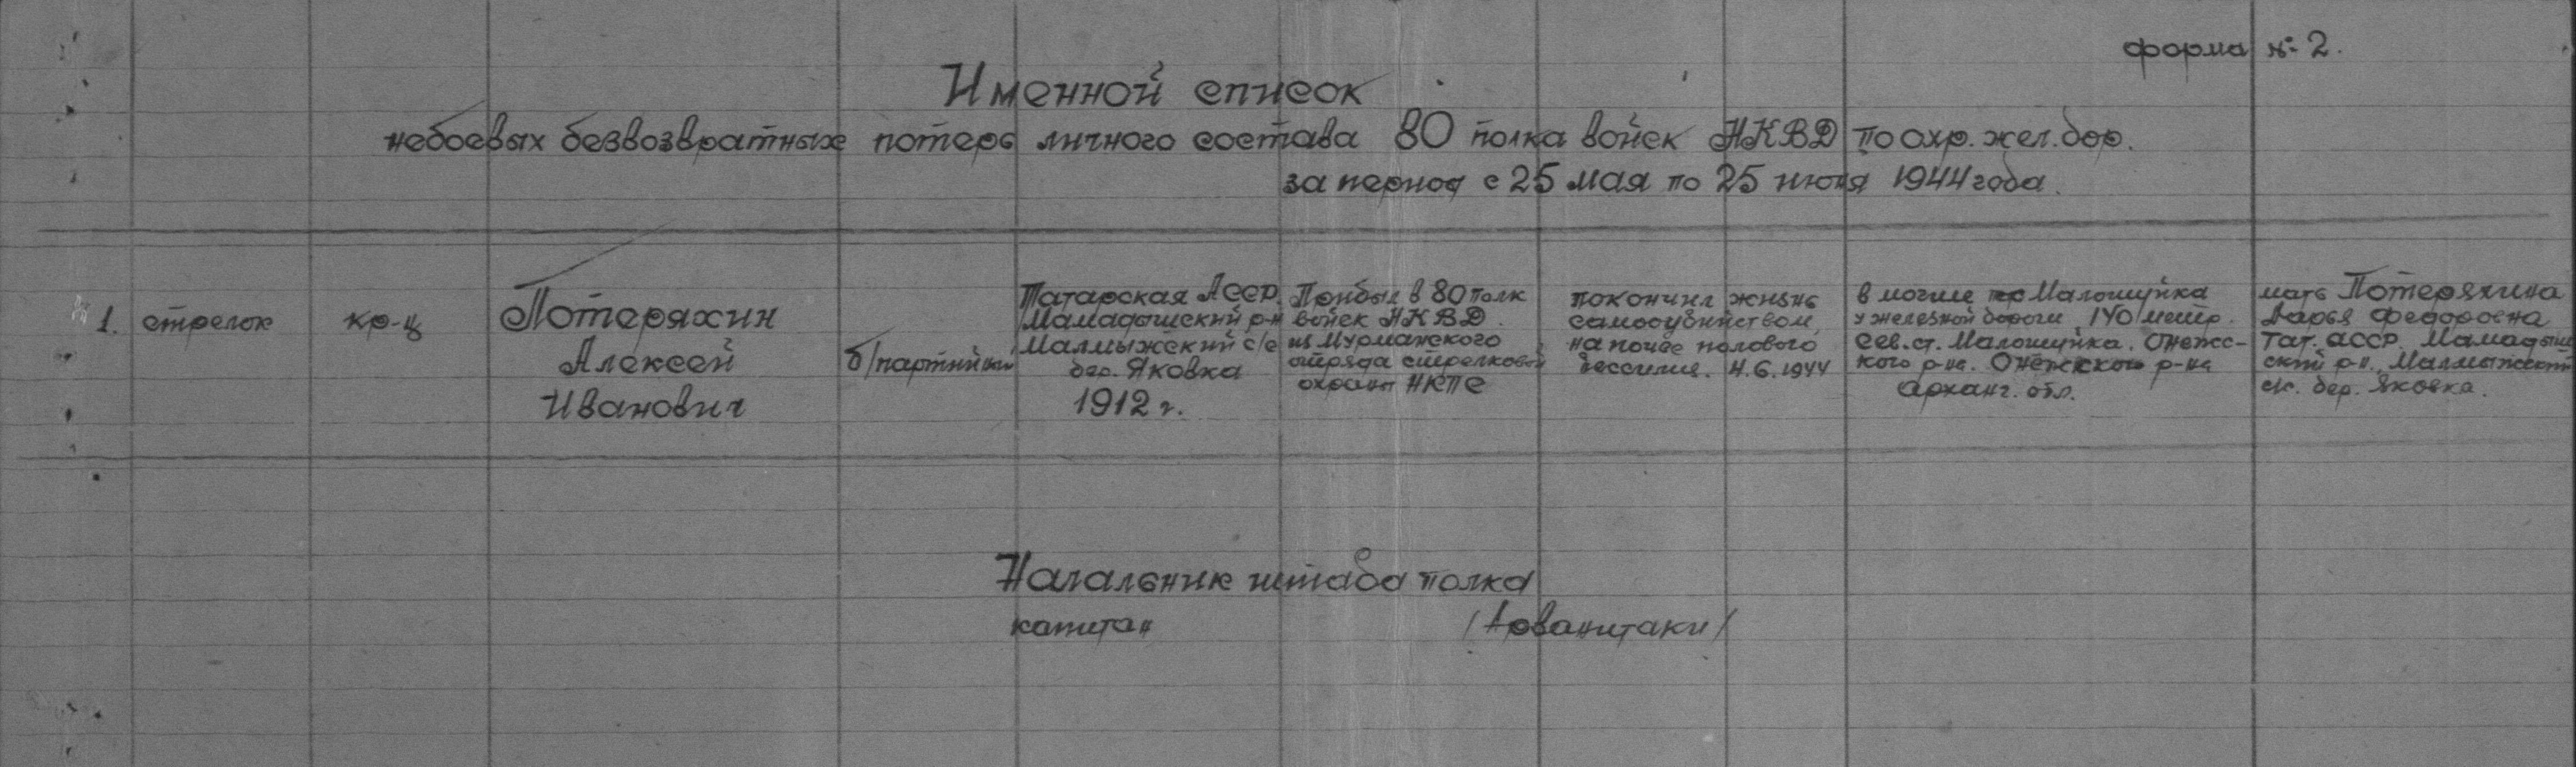 форма № 2.
Именной список
небоевых безвозвратных потерь личного состава 80 полка войск НКВД по охр. жел. дор.
за период с 25 мая по 25 июня 1944 года.
1.
стрелок
кр-ц
Потеряхин
Алексей
Иванович
б/партийный
Татарская АССР.
Мамадышский р-н
Малмыжский с/с
дер. Яковка
1912 г.
Прибыл в 80 полк
войск НКВД
из Мурманского
отряда стрелковой
охраны НКПС
покончил жизнь
самоубийством,
на почве полового
бессилия. 4.6.1944
в могиле Малошуйка
у железной дороги 140 метр.
сев. ст. Малошуйка. Онежс-
кого р-на. Онежского р-на
Арханг. обл.
мать Потеряхина
Дарья Федоровна
Тат. АССР Мамадыш
ский р-н. Малмыжский
с/с. дер. Яковка.
Начальник штаба полка
капитан /Арванитаки/